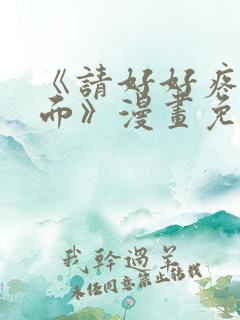 《請好好疼
而》漫畫免
我幹過羊
未经同意禁止转载